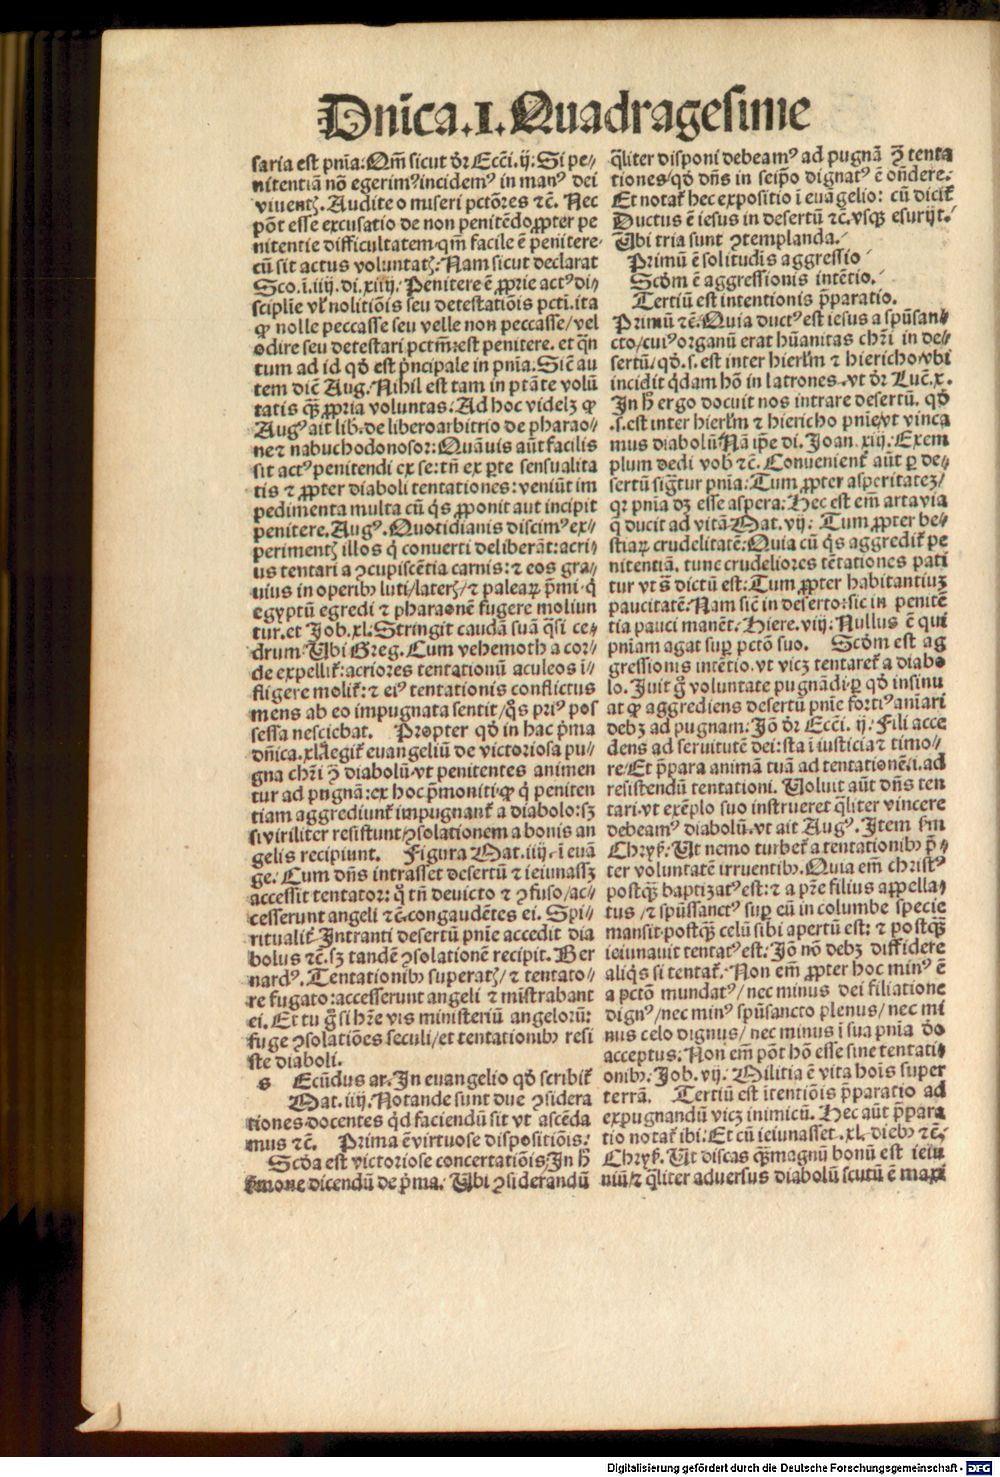 Dn̄ica.I.Quadragesime
saria est pn̄ia:Qm̄ sicut dr̄ Ecc̄i.ij:Si pe⸗
nitentiā nō egerimꝰ:incidemꝰ in manꝰ dei
viuentꝭ.Audite o miseri pctōres ⁊c̄. Nec
pōt esse excusatio de non penitēdo,ꝓpter pe
nitentie difficultatem.qm̄ facile ē penitere.
cū sit actus voluntatꝭ:Nam sicut declarat
Sco.i.iiij.di.xiiij.Penitere ē ꝓprie actꝰ di⸗
sciplīe vl̓ nolitiōis seu detestatiōis pcti.ita
ꝙ nolle peccasse seu velle non peccasse/vel
odire seu detestari pctm̄:est penitere. et q̄n
tum ad id qd̓ est p̄ncipale in pn̄ia.Sic̄ au
tem dic̄ Aug.Nihil est tam in ptāte volū
tatis qꝫ̄ ꝓpria voluntas.Ad hoc videlꝫ ꝙ
Augꝰ ait lib.de liberoarbitrio de pharao⸗
ne ⁊ nabuchodonosor:Quāuis aūt facilis
sit actꝰ penitendi ex se:tn̄ ex ꝑte sensualita
tis ⁊ ꝓpter diaboli tentationes:veniūt im
pedimenta multa cū q̄s ꝓponit aut incipit
penitere.Augꝰ.Quotidianis discimꝰ ex⸗
perimentꝭ illos q̓ conuerti deliberāt:acri⸗
us tentari a ꝯcupiscētia carnis:⁊ eos gra⸗
uius in operibꝰ luti/laterꝭ/⁊ paleaꝝ p̄mi.q̓
egyptū egredi ⁊ pharaonē fugere moliun
tur.et Job.xl.Stringit caudā suā q̄si ce⸗
drum:Ubi Greg.Cum vehemoth a cor⸗
de expellit̓:acriores tentationū aculeos ī⸗
fligere molit̓:⁊ eiꝰ tentationis conflictus
mens ab eo impugnata sentit/q̄s priꝰ pos
sessa nesciebat. Propter qd̓ in hac p̄ma
dn̄ica.xl.legit̓ euangeliū de victoriosa pu⸗
gna chr̄i ꝯ̄ diabolū.vt penitentes animen
tur ad pugnā:ex hoc p̄moniti.ꝙ q̓ peniten
tiam aggrediunt̓ impugnant̓ a diabolo:sꝫ
si viriliter resistunt/ꝯsolationem a bonis an
gelis recipiunt. Figura Mat.iiij.ī euā
ge.Cum dn̄s intrasset desertū ⁊ ieiunassꝫ
accessit tentator:q̓ tn̄ deuicto ⁊ ꝯfuso/ac⸗
cesserunt angeli ⁊c̄.congaudētes ei. Spi⸗
ritualit̓.Intranti desertū pn̄ie accedit dia
bolus ⁊c̄.sꝫ tandē ꝯsolationē recipit.Ber
nardꝰ.Tentationibꝰ superatꝭ/⁊ tentato⸗
re fugato:accesserunt angeli ⁊ mīstrabant
ei.Et tu g̊ si hr̄e vis ministeriū angelorū:
fuge ꝯsolatiōes seculi/et tentationibꝰ resi
ste diaboli.
s Ecūdus ar.In euangelio qd̓ scribit̓
Mat.iiij.Notande sunt due ꝯsidera
tiones docentes q̓d faciendū sit vt ascēda
mus ⁊c̄. Prima ē virtuose dispositiōis:
Scōa est victoriose concertatiōis/In h̄
ẜmone dicendū de p̄ma. Ubi ꝯsiderandū
q̄liter disponi debeamꝰ ad pugnā ꝯ̄ tenta
tiones/qd̓ dn̄s in seip̄o dignatꝰ ē on̄dere.
Et notat̓ hec expositio ī euāgelio: cū dicit̓
Ductus ē iesus in desertū ⁊c̄.vsqꝫ esurijt.
Ubi tria sunt ꝯtemplanda.
Primū ē solitudīs aggressio
Scōm ē aggressionis intētio.
Tertiū est intentionis p̄paratio.
Primū ⁊c̄.Quia ductꝰ est iesus a spūsan⸗
cto/cuiꝰ organū erat hūanitas chr̄i in de⸗
sertū/qd̓.s.est inter hierl̓m ⁊ hiericho/vbi
incidit q̓dam hō in latrones.vt dr̄ Luc̄.x.
In h̄ ergo docuit nos intrare desertū. qd̓
.s.est inter hierl̓m ⁊ hiericho pn̄ie/vt vinca
mus diabolū/Nā ip̄e di.Joan.xiij.Exem
plum dedi vob̄ ⁊c̄.Conuenient̓ aūt ꝑ de⸗
sertū sig̓tur pn̄ia:Tum ꝓpter asperitatēꝫ/
qꝛ pn̄ia dꝫ esse aspera:Hec est em̄ arta via
q̄ ducit ad vitā Mat.vij: Tum ꝓpter be⸗
stiaꝝ crudelitatē:Quia cū q̄s aggredit̓ pe
nitentiā. tunc crudeliores tētationes pati
tur vt s̄ dictū est:Tum ꝓpter habitantiuꝫ
paucitatē:Nam sic̄ in deserto:sic in penitē
tia pauci manēt.Hiere.viij:Nullus ē qui
pn̄iam agat suꝑ pctō suo. Scōm est ag
gressionis intētio.vt vicꝫ tentaret̓ a diabo
lo.Iuit g̊ voluntate pugnādi.ꝑ qd̓ insinu
at ꝙ aggrediens desertū pn̄ie fortiꝰ anīari
debꝫ ad pugnam:Jō dr̄ Ecc̄i. ij.Fili acce
dens ad seruitutē dei:sta ī iusticia ⁊ timo⸗
re/Et p̄para animā tuā ad tentationē.i.ad
resistendū tentationi. Uoluit aūt dn̄s ten
tari.vt exēplo suo instrueret q̄liter vincere
debeamꝰ diabolū.vt ait Augꝰ.Item ẜm
Chryß.Ut nemo turbet̓ a tentationibꝰ p̄⸗
ter voluntatē irruentibꝰ.Quia em̄ christꝰ
postqꝫ̄ baptizatꝰ est:⁊ a pr̄e filius appella⸗
tus /⁊ spūssanctꝰ suꝑ eū in columbe specie
mansit.postqꝫ̄ celū sibi apertū est: ⁊ postqꝫ̄
ieiunauit tentatꝰ est:Jō nō debꝫ diffidere
aliq̓s si tentat̓.Non em̄ ꝓpter hoc minꝰ ē
a pctō mundatꝰ/nec minus dei filiatione
dignꝰ/nec minꝰ spūsancto plenus/nec mi
nus celo dignus/ nec minus ī sua pn̄ia dō
acceptus.Non em̄ pōt hō esse sine tentati⸗
onibꝰ.Job.vij.Militia ē vita hoīs super
terrā. Tertiū est ītentiōis p̄paratio ad
expugnandū vicꝫ inimicū.Hec aūt p̄para
tio notat̓ ibi:Et cū ieiunasset.xl.diebꝰ ⁊c̄.
Chryß.Ut discas qꝫ̄ magnū bonū est ieiu
niū/⁊ q̄liter aduersus diabolū scutū ē maxi
Digitalisierung gefördert durch die Deutsche Forschungsgemeinschaft - DFG